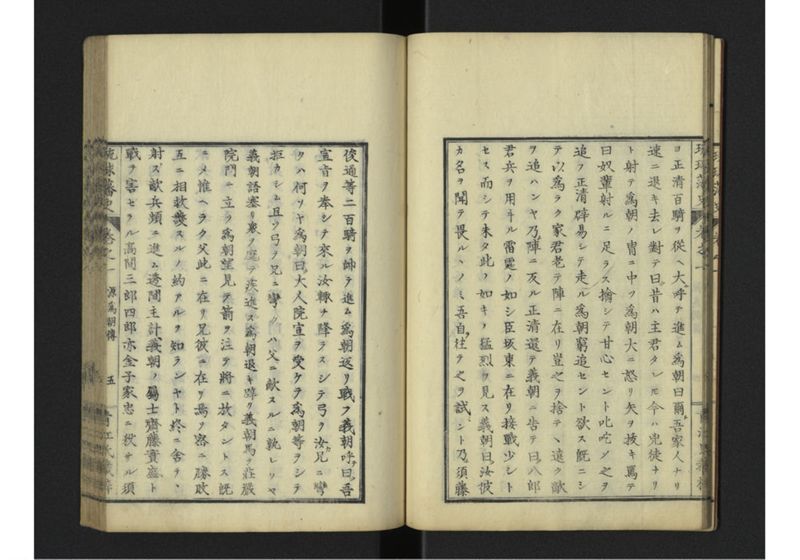 ヨ正清百騎ヲ從ヘ大呼テ進ム爲朝曰爾吾家人ナリ
速ニ退キ去レ對テ曰昔ハ主君タレ𪜈今ハ兇徒ナリ
ト射テ爲朝ノ冑ニ中ツ爲朝大ニ怒リ矢ヲ拔キ罵テ
曰奴輩射ルニ足ラス擒シテ甘心セント叱咤ノ之ヲ
追フ正清辟易シテ走ル爲朝窮追セント欲ス既ニシ
テ以爲ラク家君老テ陣ニ在リ豈之ヲ捨テヽ遠ク敵
ヲ追ハンヤ乃陣ニ反ル正清還テ義朝ニ告テ曰八郎
君兵ヲ用ヰル雷霆ノ如シ臣坂東ニ在リ接戰少シト
セス而シテ未タ此ノ如キノ猛烈ヲ見ス義朝曰汝彼
カ名ヲ聞テ畏ルヽノミ吾自往テ之ヲ試ント乃須藤
俊通等二百騎ヲ帥テ進ム爲朝返リ戰フ義朝呼曰吾
宣旨ヲ奉シテ來ル汝輙チ降ラスシテ弓ヲ汝兄ニ彎
クハ何ソヤ爲朝曰大人院宣ヲ受ケテ爲朝等ヲシテ
拒カシム且ツ弓ヲ兄ニ彎クハ父ニ敵スルニ孰レソヤ
義朝語塞リ衆ノ麾テ疾進ス爲朝退キ跡ク義朝馬ヲ莊嚴
院門ニ立ツ爲朝望見テ箭ヲ注テ將ニ放タントス既
ニメ惟ヘラク父此ニ在リ兄彼ニ在リ焉ソ密ニ勝敗
互ニ相救護スルノ約アルヲ知ランヤト終ニ舍テヽ
射ス敵兵頗ニ進ム遭間主計義朝ノ屬士齋藤實盛ト
戰ヲ害セラル高間三郎四郎亦金子家忠ニ殺サル須
卷之一
源爲朝傳
五